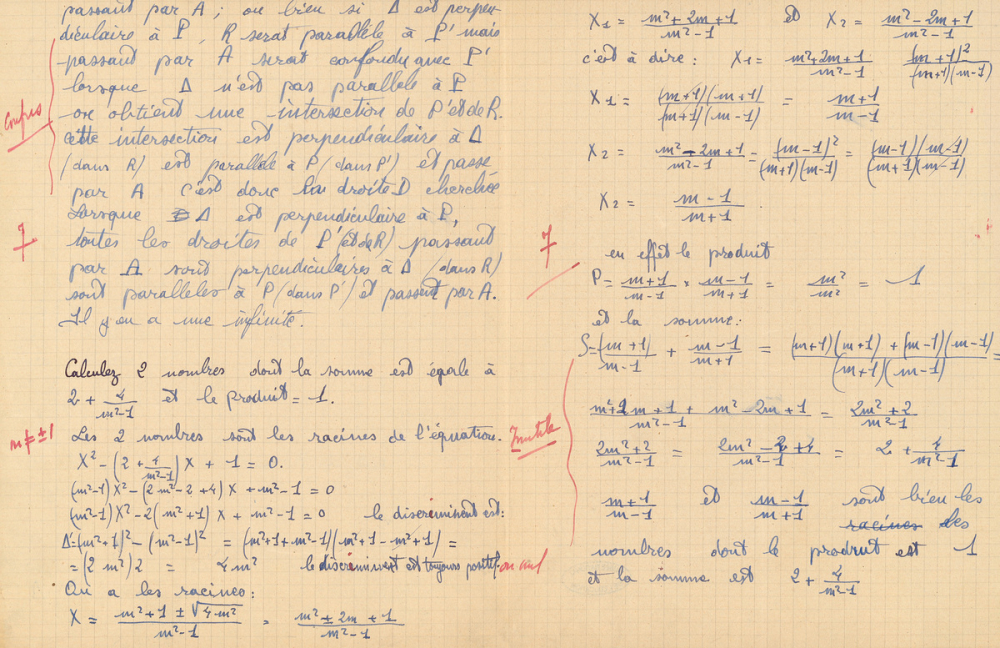 passant par A ; ou bien si Δ est perpen-
diculaire à P, R serait parallèle à P' mais
passant par A serait confondu avec P'
lorsque Δ n'est pas parallèle à P
on obtient une intersection de P' et de R.
Confus
cette intersection est perpendiculaire à Δ
(dans R) est parallèle à P (dans P') et passe
par A c'est donc la droite D cherchée
Lorsque Δ est perpendiculaire à P,
7
toutes les droites de P' (et de R) passant
par A sont perpendiculaires à Δ (dans R)
sont parallèles à P (dans P') et passent par A.
Il y en a une infinité.
Calculez 2 nombres dont la somme est égale à
2 + 4/(m²-1) et le produit = 1.
m ≠ ±1
Les 2 nombres sont les racines de l'équation.
X² - (2 + 4/(m²-1)) X + 1 = 0.
(m²-1)X² - (2m²-2+4) X + m²-1 = 0
(m²-1)X² - 2(m²+1) X + m²-1 = 0 le discriminent est:
Δ = (m²+1)² - (m²-1)² = (m²+1+m²-1)(m²+1-m²+1) =
= (2m²)2 = 4m² le discriminent est toujours positif. ou nul
On a les racines :
X = (m²+1 ± √4m²)/(m²-1) = (m² ± 2m + 1)/(m²-1)
X1 = (m²+2m+1)/(m²-1) et X2 = (m²-2m+1)/(m²-1)
c'est à dire : X1 = (m²+2m+1)/(m²-1) (m+1)²/(m+1)(m-1)
X1 = (m+1)(m+1)/(m+1)(m-1) = (m+1)/(m-1)
X2 = (m²-2m+1)/(m²-1) = (m-1)²/(m+1)(m-1) = (m-1)(m-1)/(m+1)(m-1)
X2 = (m-1)/(m+1)
7
en effet le produit
P = (m+1)/(m-1) × (m-1)/(m+1) = m²/m² = 1
et la somme:
S = (m+1)/(m-1) + (m-1)/(m+1) = ((m+1)(m+1) + (m-1)(m-1))/(m+1)(m-1) =
Inutile
(m²+2m+1 + m²-2m+1)/(m²-1) = (2m²+2)/(m²-1)
(2m²+2)/(m²-1) = (2m²-2+4)/(m²-1) = 2 + 4/(m²-1)
(m+1)/(m-1) et (m-1)/(m+1) sont bien les
racines des
nombres dont le produit est 1
et la somme est 2 + 4/(m²-1)